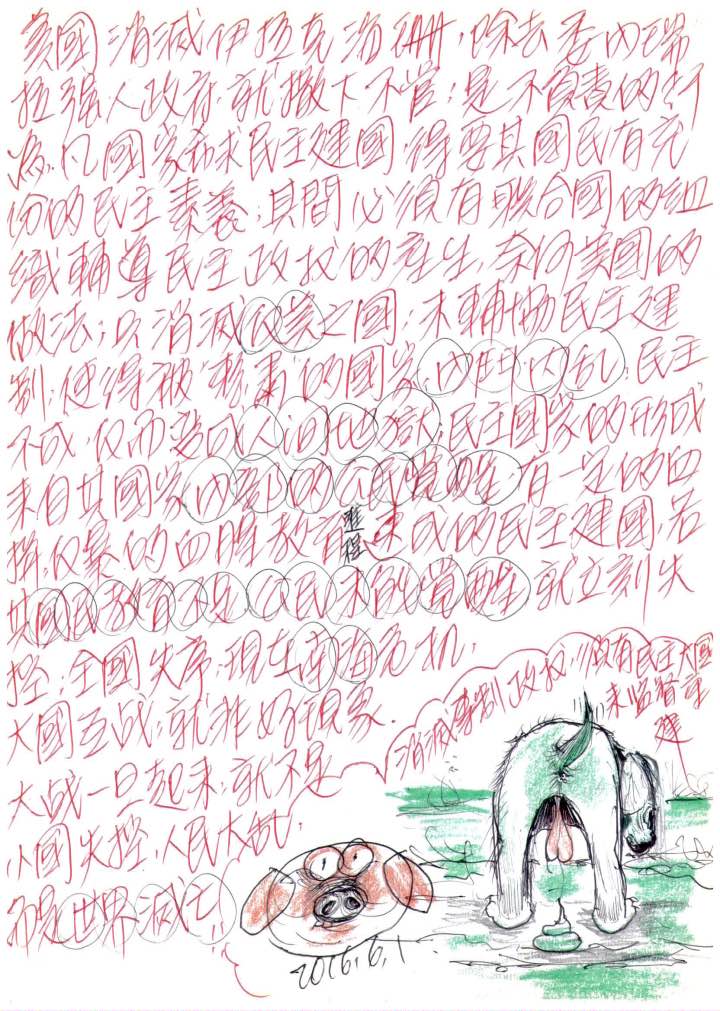 美國消滅伊拉克海珊,除去委內瑞
拉強人政府,就撒下不管;是不負責的行
為.凡國家希求民主建國,得要其國民有充
份的民主素養;其間必須有聯合國的組
織輔導民主政权的產生,奈何美國的
做法;只消滅之國;未輔協民主建
制,使得被的國家,內鬥內乱,民主
不成,反而造成人间地獄;民主國家的形成
來自其國家內部的公民覺醒,有一定的
的教育進程速成的民主建國,若
其國民教育不足公民未能覺醒就立刻失
控;全國失序;現在南海危机,
大國互战;就非好現象.
大战一旦起來;就不是
小國失控,人民大乱,
而是世界滅亡!!
消滅專制政权,//沒有民主大國
來监督重
建
2016.6.1